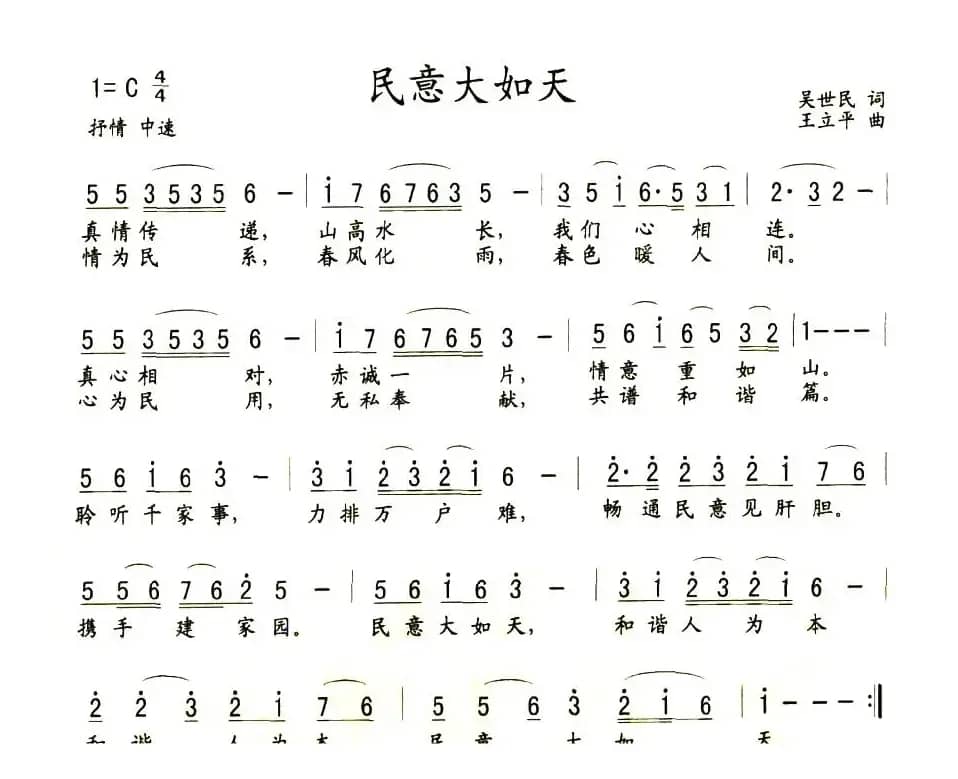 1= C 4/4
民意大如天
吴世民 词
抒情 中速
王立平 曲
5 5 3 5 3 5 6 – | i 7 6 7 6 3 5 – | 3 5 i 6· 5 3 1 | 2· 3 2 – |
真情传 递, 山高水 长, 我们 心 相 连。
情为民 系, 春风化 雨, 春色 暖 人 间。
5 5 3 5 3 5 6 – | i 7 6 7 6 5 3 – | 5 6 i 6 5 3 2 | 1 – – – |
真心相 对, 赤诚一 片, 情意 重 如 山。
心为民 用, 无私奉 献, 共谱 和 谐 篇。
5 6 i 6 3̇ – | 3̇ i 2̇ 3̇ 2̇ i 6 – | 2̇· 2̇ 2̇ 3̇ 2̇ i 7 6 |
聆听千家事, 力排万 户 难, 畅 通民意见肝胆。
5 5 6 7 6 2̇ 5 – | 5 6 i 6 3̇ – | 3̇ i 2̇ 3̇ 2̇ i 6 – |
携手 建 家园。 民意大如天, 和谐人 为 本
2̇ 2̇ 3̇ 2̇ i 7 6 | 5 5 6 3̇ 2̇ i 6 | i – – – :‖
和谐 人为本 民意 大 如 天